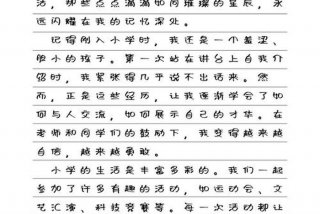 活，那些点点滴滴如同璀璨的星辰，永
远闪耀在我的记忆深处。
记得刚入小学时，我还是一个羞涩、
胆小的孩子。第一次站在讲台上自我介
绍时，我紧张得几乎说不出话来。然
而，正是这些经历，让我逐渐学会了如
何与人交流，如何展示自己的才华。在
老师和同学们的鼓励下，我变得越来越
自信，越来越勇敢。
小学的生活是丰富多彩的。我们一起
参加了许多有趣的活动，如运动会、文
艺汇演、科技竞赛等。每一次活动都让